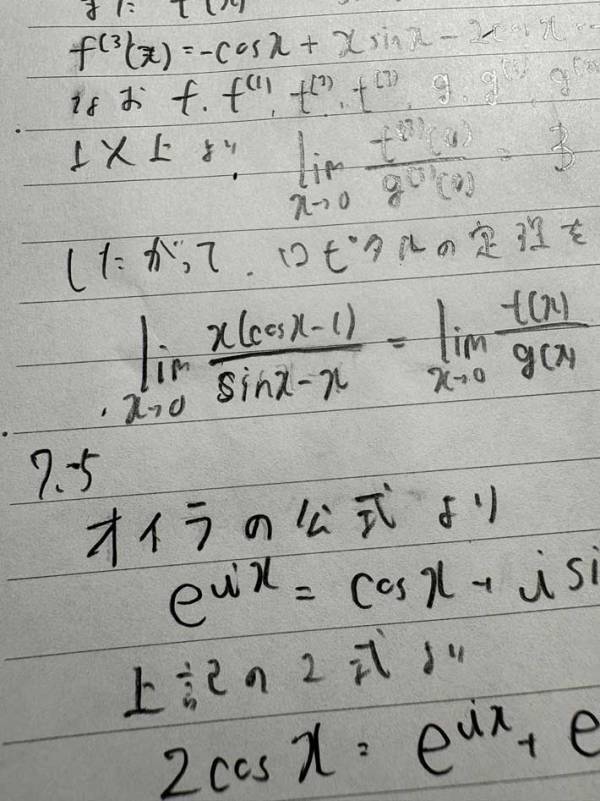 f⁽³⁾(x)=-cosx + x sinx - 2cosx
なお f, f⁽¹⁾, f⁽²⁾, f⁽³⁾, g, g⁽¹⁾, g
以上より, lim x→0 f⁽³⁾(x)/g⁽³⁾(x) = 3
したがって, ロピタルの定理を
lim x→0 x(cosx-1)/sinx-x = lim x→0 f(x)/g(x)
7.-5
オイラの公式より
e^ix = cosx + i si
上記の2式より
2cosx = e^ix + e